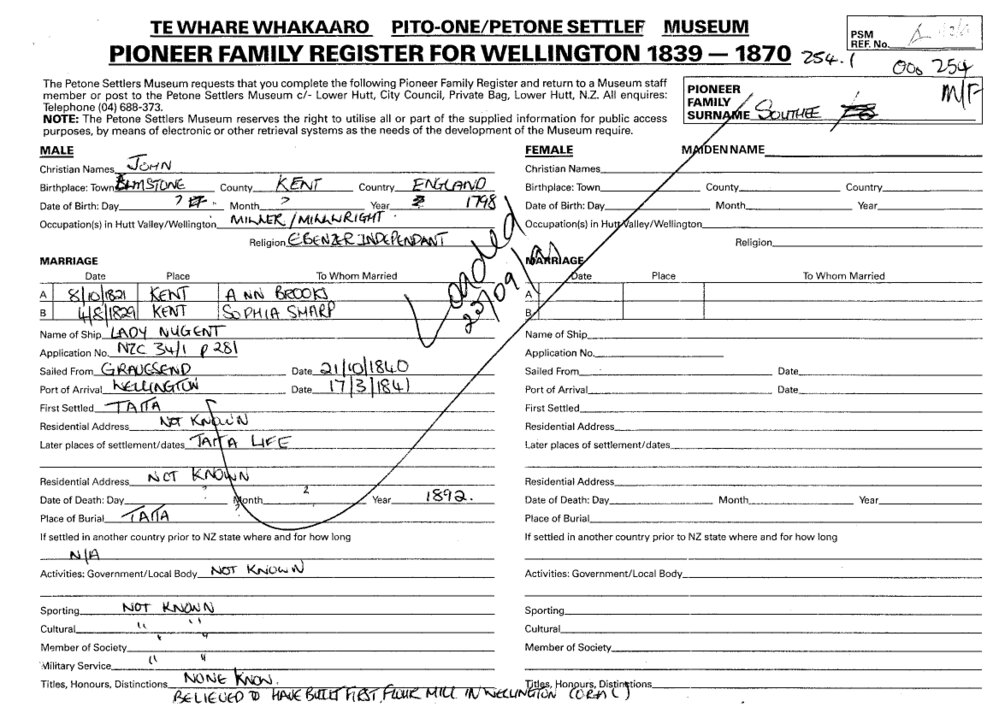 TE WHARE WHAKAARO PITO-ONE/PETONE SETTLEF MUSEUM
PIONEER FAMILY REGISTER FOR WELLINGTON 1839 — 1870 254.1
PSM REF. No.
000 254
M/F
The Petone Settlers Museum requests that you complete the following Pioneer Family Register and return to a Museum staff
member or post to the Petone Settlers Museum c/- Lower Hutt, City Council, Private Bag, Lower Hutt, N.Z. All enquires:
Telephone (04) 688-373.
NOTE: The Petone Settlers Museum reserves the right to utilise all or part of the supplied information for public access
purposes, by means of electronic or other retrieval systems as the needs of the development of the Museum require.
PIONEER
FAMILY
SURNAME SOUTHEE
MALE
Christian Names JOHN
Birthplace: Town ELMSTONE County KENT Country ENGLAND
Date of Birth: Day ? Month ? Year 1798
Occupation(s) in Hutt Valley/Wellington MILLER/MILLWRIGHT
Religion EBENZER INDEPENDANT
MARRIAGE
Date Place To Whom Married
A 8/10/1821 KENT ANN BROOKS
B 4/8/1829 KENT SOPHIA SHARP
Name of Ship LADY NUGENT
Application No. NZC 34/1 p 281
Sailed From GRAVESEND Date 21/10/1840
Port of Arrival WELLINGTON Date 17/3/1841
First Settled TAITA
Residential Address NOT KNOWN
Later places of settlement/dates TAITA LIFE
Residential Address NOT KNOWN
Date of Death: Day ? Month ? Year 1892.
Place of Burial TAITA
If settled in another country prior to NZ state where and for how long
N/A
Activities: Government/Local Body NOT KNOWN
Sporting NOT KNOWN
Cultural " "
Member of Society " "
Military Service " "
Titles, Honours, Distinctions NONE KNOWN.
BELIEVED TO HAVE BUILT FIRST FLOUR MILL IN WELLINGTON (ORAL)
Loaded
22/09/91
FEMALE MAIDEN NAME
Christian Names
Birthplace: Town County Country
Date of Birth: Day Month Year
Occupation(s) in Hutt Valley/Wellington
Religion
MARRIAGE
Date Place To Whom Married
A
B
Name of Ship
Application No.
Sailed From Date
Port of Arrival Date
First Settled
Residential Address
Later places of settlement/dates
Residential Address
Date of Death: Day Month Year
Place of Burial
If settled in another country prior to NZ state where and for how long
Activities: Government/Local Body
Sporting
Cultural
Member of Society
Military Service
Titles, Honours, Distinctions